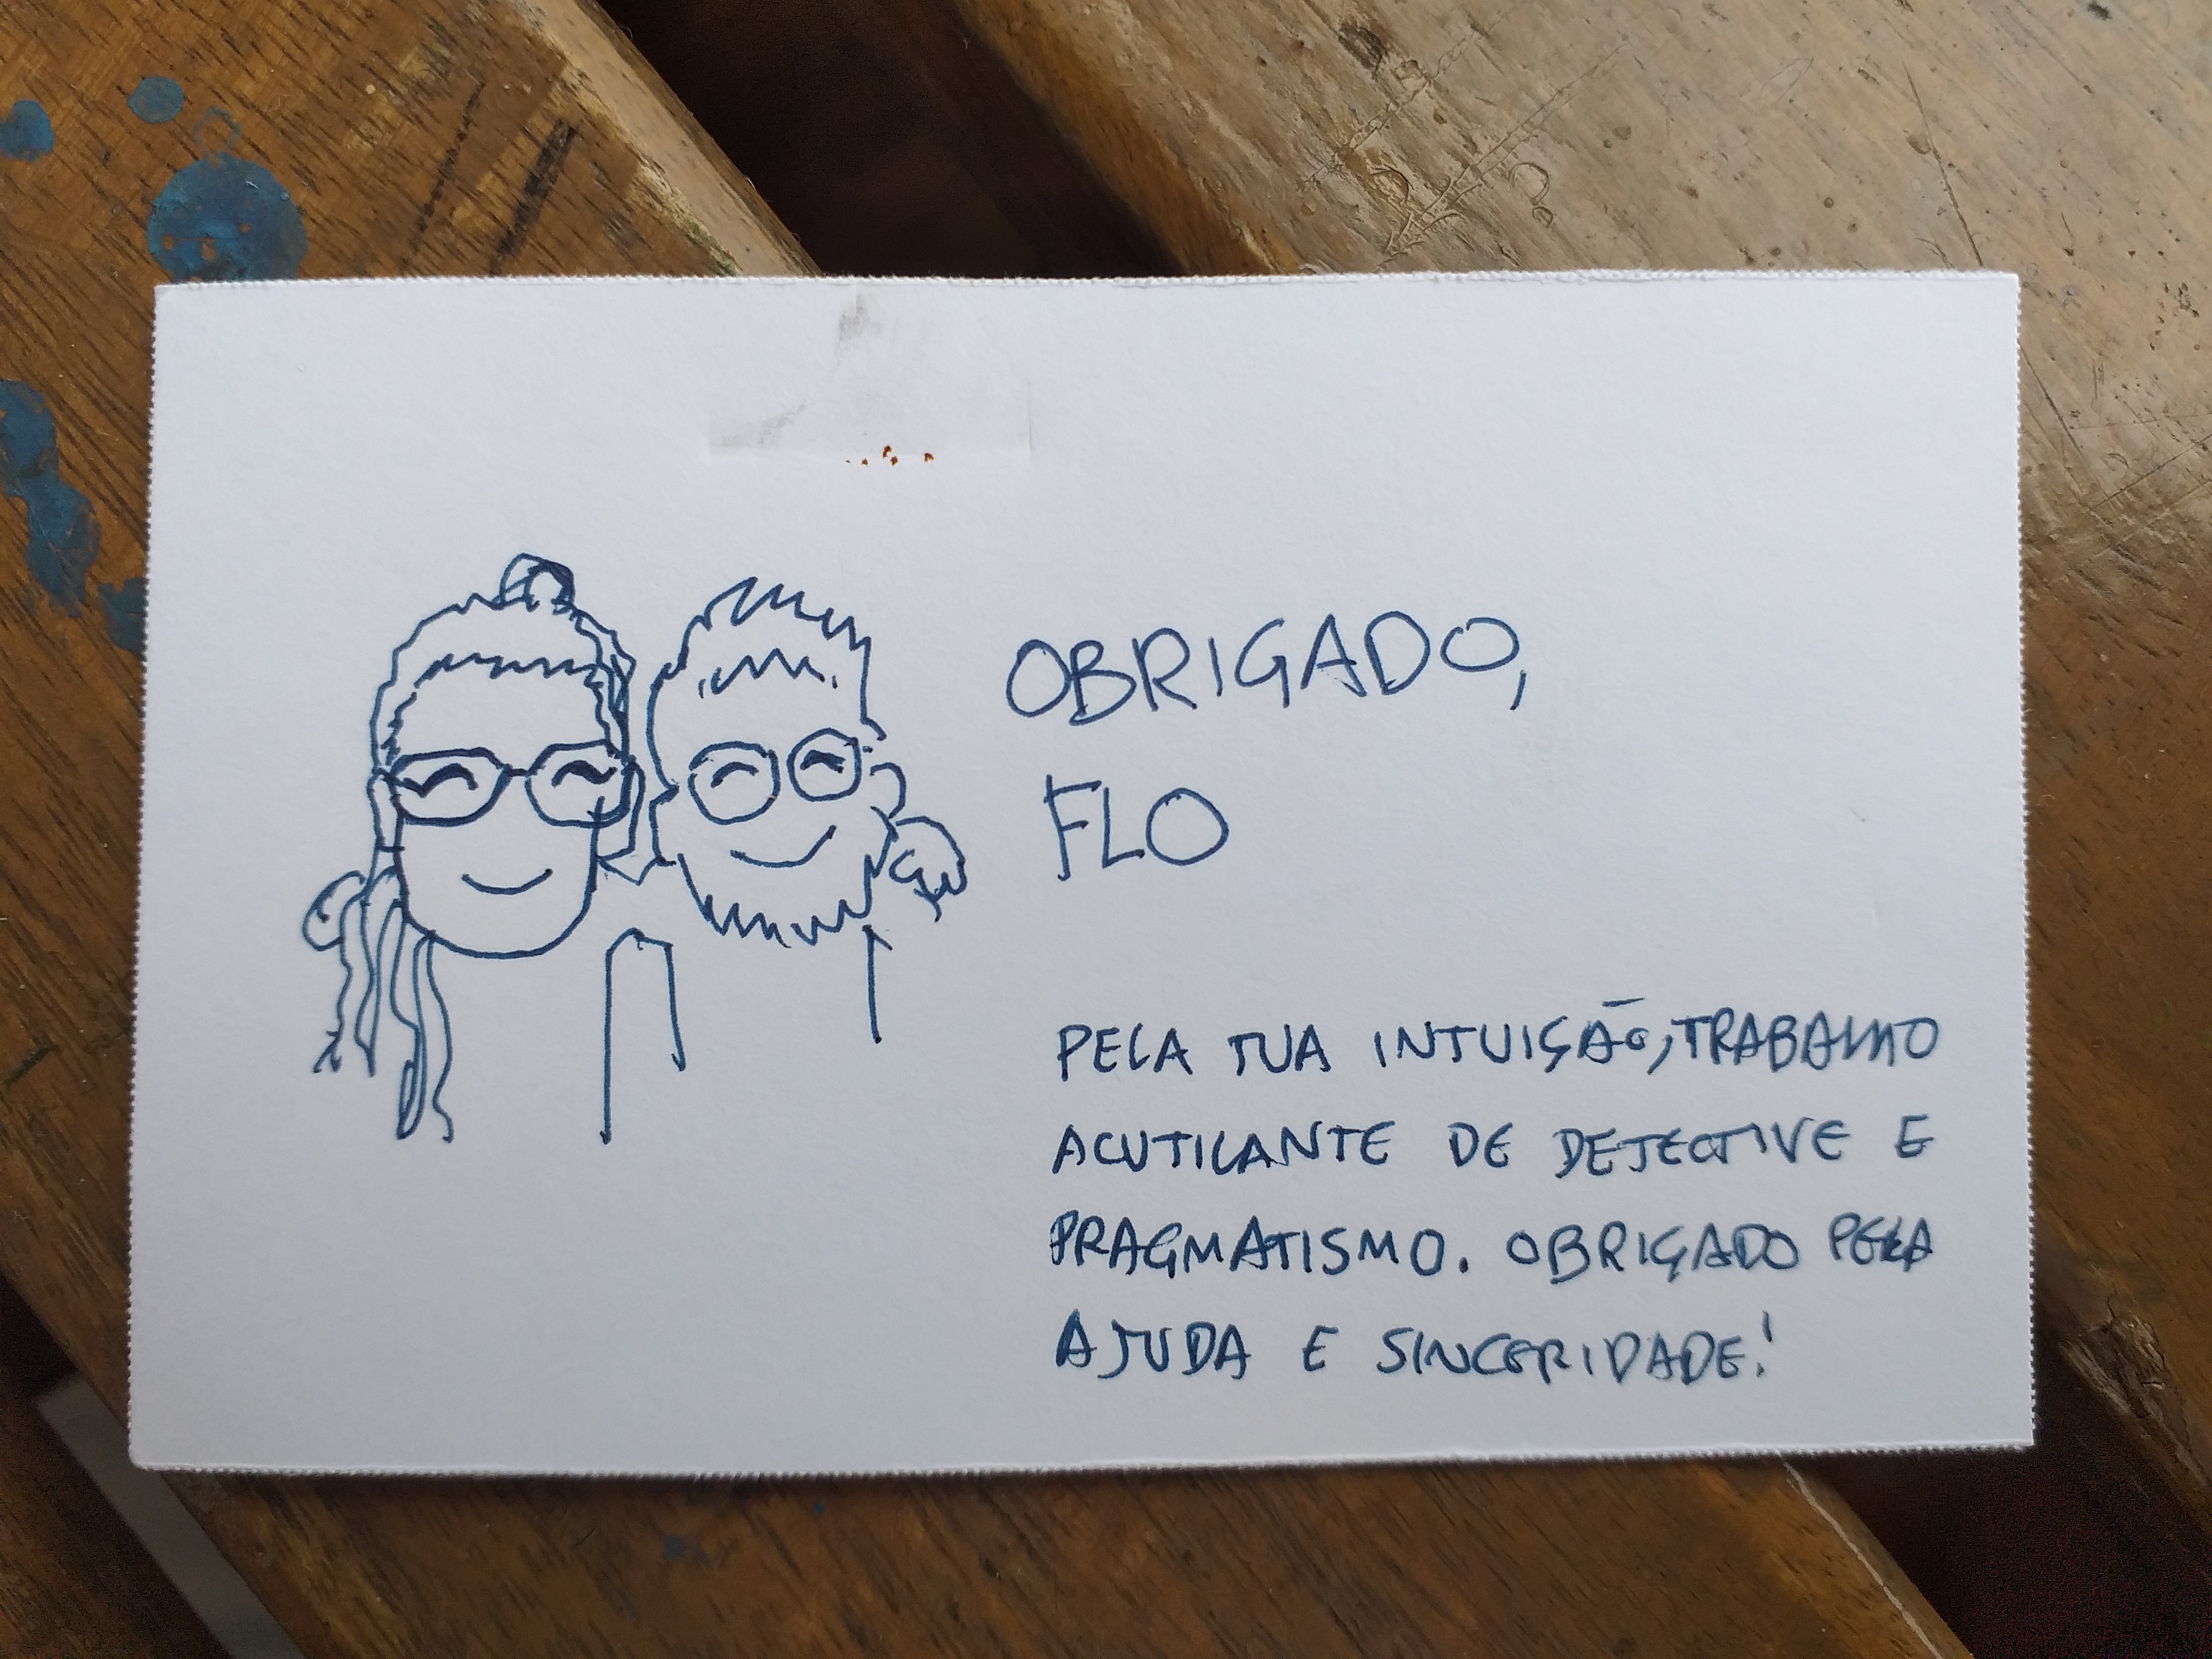 OBRIGADO,
FLO
PELA TUA INTUIÇÃO, TRABALHO
ACUTILANTE DE DETECTIVE E
PRAGMATISMO. OBRIGADO PELA
AJUDA E SINCERIDADE!